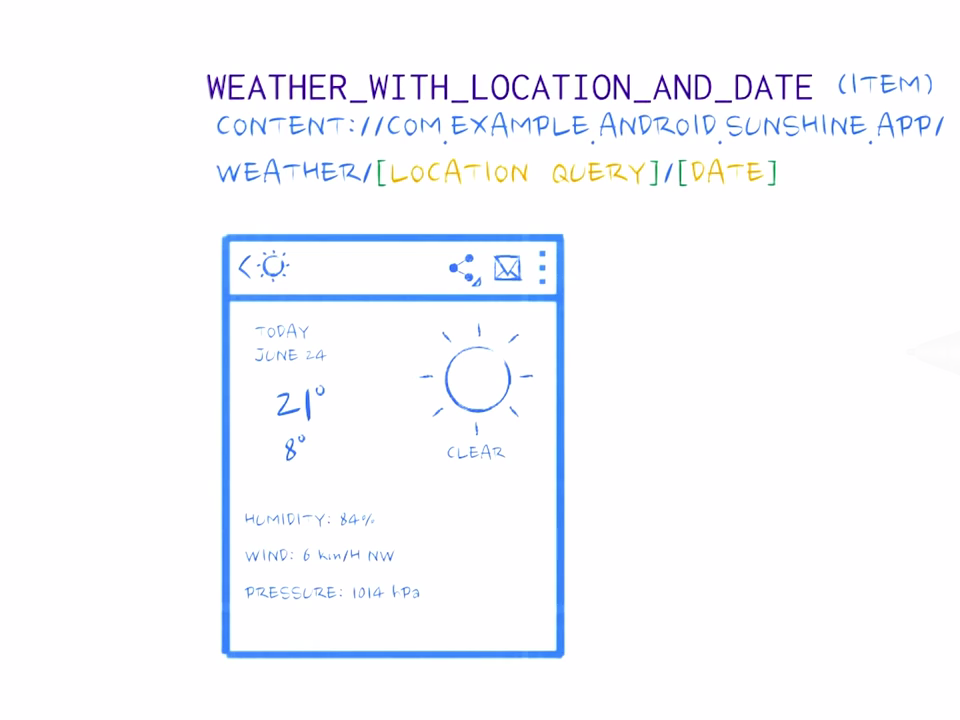 WEATHER_WITH_LOCATION_AND_DATE (ITEM)
CONTENT://COM.EXAMPLE.ANDROID.SUNSHINE.APP/
WEATHER/[LOCATION QUERY]/[DATE]
TODAY
JUNE 24
21°
8°
CLEAR
HUMIDITY: 84%
WIND: 6 km/H NW
PRESSURE: 1014 hPa